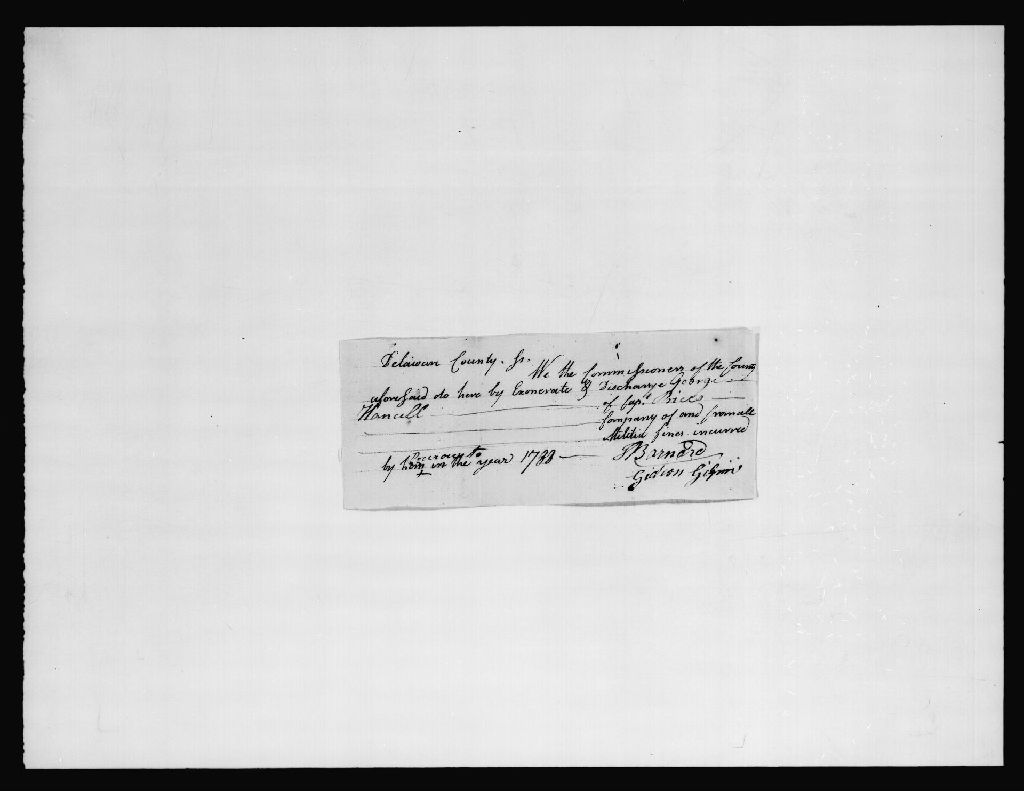 Delawar County. Ss.
We the Commissioners of the County
aforesaid do here by Exonerate & Discharge George
of Capt. Prices
Company of and from all
Militia fines incurred
previous to
by him in the year 1788
Barnard
Gideon